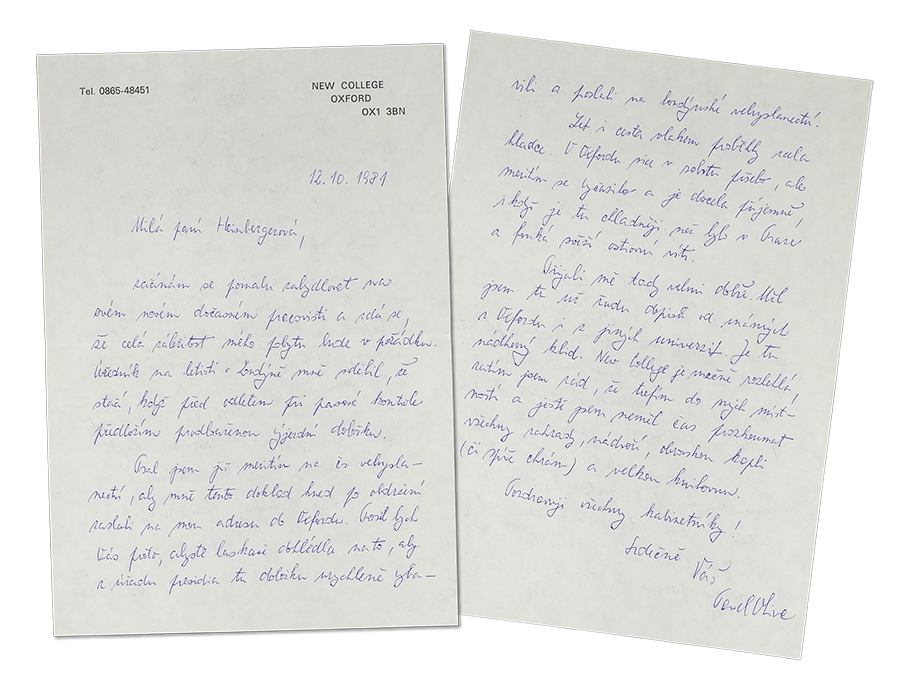 Tel. 0865-48451
NEW COLLEGE
OXFORD
OX1 3BN
12. 10. 1981
Milá paní Heinbergerová,
začínám se pomalu zabydlovat na
svém novém dočasném pracovišti a zdá se,
že celá záležitost mého pobytu bude v pořádku.
Úředník na letišti v Londýně mně sdělil, že
stačí, když před odletem při pasové kontrole
předložím prodlouženou výjezdní doložku.
Psal jsem již mezitím na čs velvysla-
nectví, aby mně tento doklad hned po obdržení
zaslali na mou adresu do Oxfordu. Prosil bych
Vás proto, abyste laskavě dohlédla na to, aby
z úřadu presidia tu doložku urychleně vyba-
vili a poslali na londýnské velvyslanectví.
Let i cesta vlakem proběhly zcela
hladce. V Oxfordu sice v sobotu pršelo, ale
mezitím se vyčasilo a je docela příjemně,
i když je tu chladněji než bylo v Praze
a fouká svěží ostrovní vítr.
Přijali mě tady velmi dobře. Měl
jsem tu už řadu dopisů od známých
z Oxfordu i z jiných universit. Je tu
nádherný klid. New College je značně rozlehlá,
zatím jsem rád, že trefím do svých míst-
ností a ještě jsem neměl čas prozkoumat
všechny zahrady, nádvoří, obrovskou kapli
(či spíše chrám) a velkou knihovnu.
Pozdravuji všechny kabinetníky!
Srdečně
Váš
Pavel Oliva